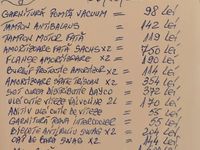 GARNITURĂ POMPĂ VACUUM = 98 LEI
TAMPON ANTIBALANS = 142 LEI
TAMPON MOTOR FAȚĂ = 119 LEI
AMORTIZOARE FAȚĂ SACHS X2 = 750 LEI
FLANȘE AMORTIZOARE X2 = 190 LEI
BURDUF PROTECȚIE AMORTIZOR X2 = 114 LEI
AMORTIZOARE SPATE X2 = 354 LEI
SET CUREA DISTRIBUȚIE DAYCO = 372 LEI
ULEI CUTIE VITEZE VALVOLINE 2L = 170 LEI
ADITIV ULEI CUTIE DE VITEZE = 55 LEI
GARNITURĂ INTERCOOLER = 55 LEI
BIELETE ANTIRULIU SWAG X2 = 204 LEI
CAP DE BARĂ SWAG X2 = 144 LEI